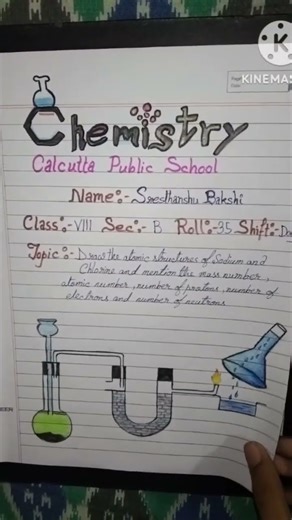 KINEMAS
Page
Date
Chemistry
Calcutta Public School
Name:- Sresthanshu Bakshi
Class:- VIII Sec:- B Roll:-35 Shift:-
Topic:- Draw the atomic structures of Sodium and
Chlorine and mention the mass number,
atomic number, number of protons, number of
electrons and number of neutrons.